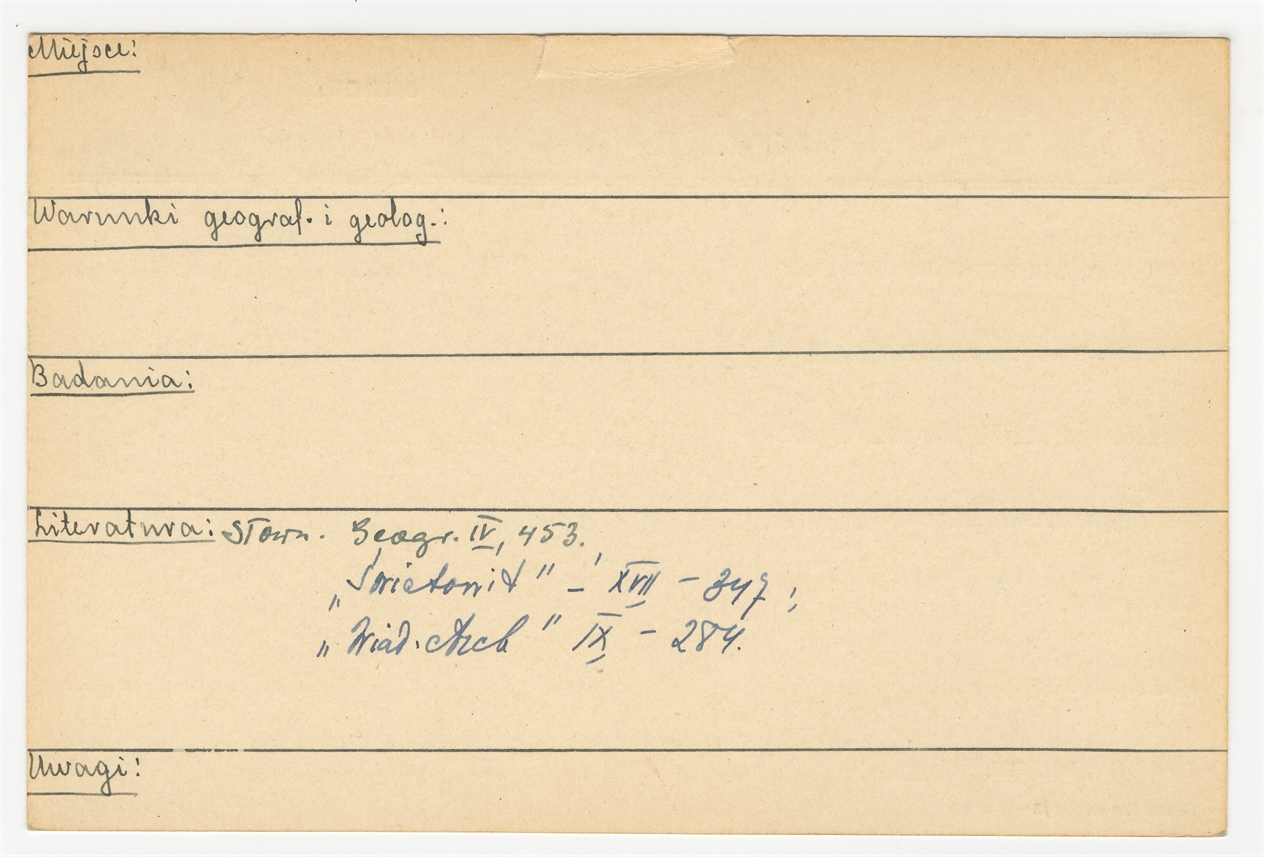 Miejsce:
Warunki geograf. i geolog.:
Badania:
Literatura: Słown. Geogr. IV, 453.
„Światowit" – XVII – 347;
„Wiad. Arch" IX – 284.
Uwagi: